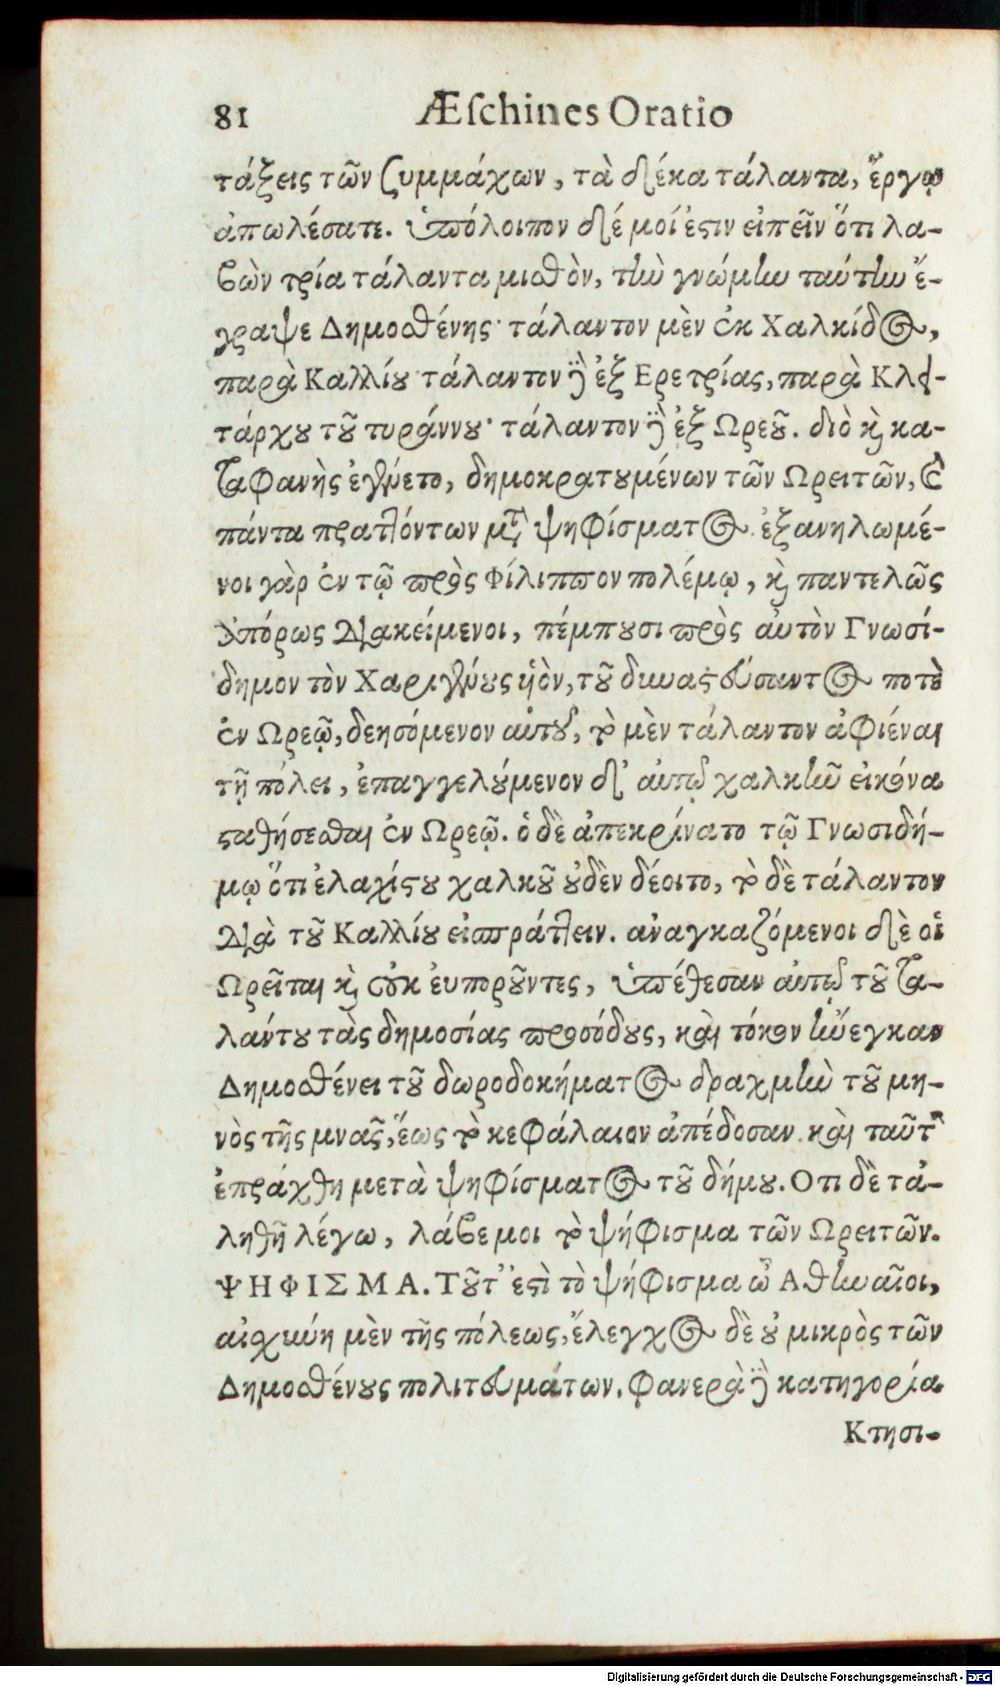 81 Æſchines Oratio
τάξεις τῶν συμμάχων, τὰ δέκα τάλαντα, ἔργῳ
ἀπωλέσατε. ὑπόλοιπον δέ μοί ἐστιν εἰπεῖν ὅτι λα-
βὼν τρία τάλαντα μισθὸν, τὴν γνώμην ταύτην ἔ-
γραψε Δημοσθένης· τάλαντον μὲν ἐκ Χαλκίδος,
παρὰ Καλλίου· τάλαντον δὲ ἐξ Ερετρίας, παρὰ Κλει-
τάρχου τοῦ τυράννου· τάλαντον δὲ ἐξ Ωρεοῦ. διὸ καὶ κα-
ταφανὴς ἐγένετο, δημοκρατουμένων τῶν Ωρειτῶν, καὶ
πάντα πραττόντων μετὰ ψηφίσματος. ἐξανηλωμέ-
νοι γὰρ ἐν τῷ πρὸς Φίλιππον πολέμῳ, καὶ παντελῶς
ἀπόρως διακείμενοι, πέμπουσι πρὸς αὐτὸν Γνωσί-
δημον τὸν Χαριγένους ὑὸν, τοῦ δυναστεύσαντος ποτὲ
ἐν Ωρεῷ, δεησόμενον αὐτοῦ, τὸ μὲν τάλαντον ἀφιέναι
τῇ πόλει, ἐπαγγελούμενον δ' αὐτῷ χαλκῆν εἰκόνα
σταθήσεσθαι ἐν Ωρεῷ. ὁ δὲ ἀπεκρίνατο τῷ Γνωσιδή-
μῳ ὅτι ἐλαχίστου χαλκοῦ οὐδὲν δέοιτο, τὸ δὲ τάλαντον
διὰ τοῦ Καλλίου εἰσπράττειν. ἀναγκαζόμενοι δὲ οἱ
Ωρεῖται καὶ οὐκ εὐποροῦντες, ὑπέθεσαν αὐτῷ τοῦ τα-
λάντου τὰς δημοσίας προσόδους, καὶ τόκον ἤνεγκαν
Δημοσθένει τοῦ δωροδοκήματος δραχμὴν τοῦ μη-
νὸς τῆς μνᾶς, ἕως τὸ κεφάλαιον ἀπέδοσαν. καὶ ταῦτ'
ἐπράχθη μετὰ ψηφίσματος τοῦ δήμου. Οτι δὲ τἀ-
ληθῆ λέγω, λάβε μοι τὸ ψήφισμα τῶν Ωρειτῶν.
ΨΗΦΙΣΜΑ. Τοῦτ' ἐστὶ τὸ ψήφισμα ὦ Αθηναῖοι,
αἰσχύνη μὲν τῆς πόλεως, ἔλεγχος δὲ οὐ μικρὸς τῶν
Δημοσθένους πολιτευμάτων. φανερὰ δὲ κατηγορία
Κτησι-
Digitalisierung gefördert durch die Deutsche Forschungsgemeinschaft - DFG